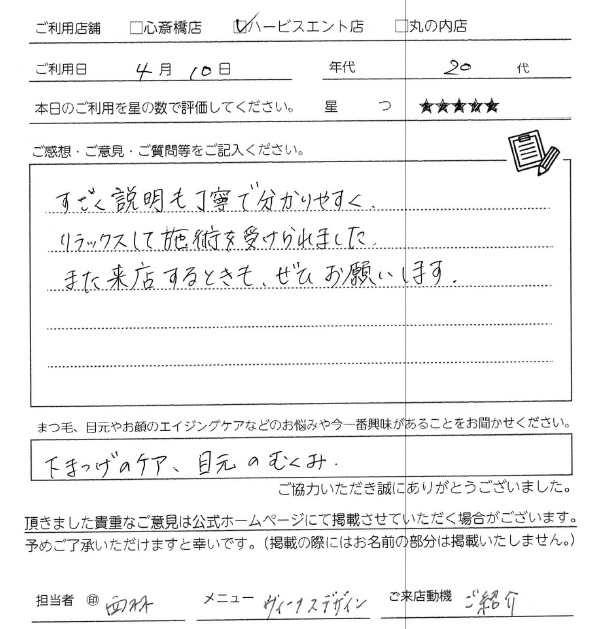 ご利用店舗 □心斎橋店 ☑ハービスエント店 □丸の内店
ご利用日 4 月 10 日 年代 20 代
本日のご利用を星の数で評価してください。 星 つ ★★★★★
ご感想・ご意見・ご質問等をご記入ください。
すごく説明も丁寧で分かりやすく、
リラックスして施術を受けられました。
また来店するときも、ぜひお願いします。
まつ毛、目元やお顔のエイジングケアなどのお悩みや今一番興味があることをお聞かせください。
下まつげのケア、目元のむくみ.
ご協力いただき誠にありがとうございました。
頂きました貴重なご意見は公式ホームページにて掲載させていただく場合がございます。
予めご了承いただけますと幸いです。(掲載の際にはお名前の部分は掲載いたしません。)
担当者 ㊞ 西林 メニュー ヴィーナスデザイン ご来店動機 ご紹介